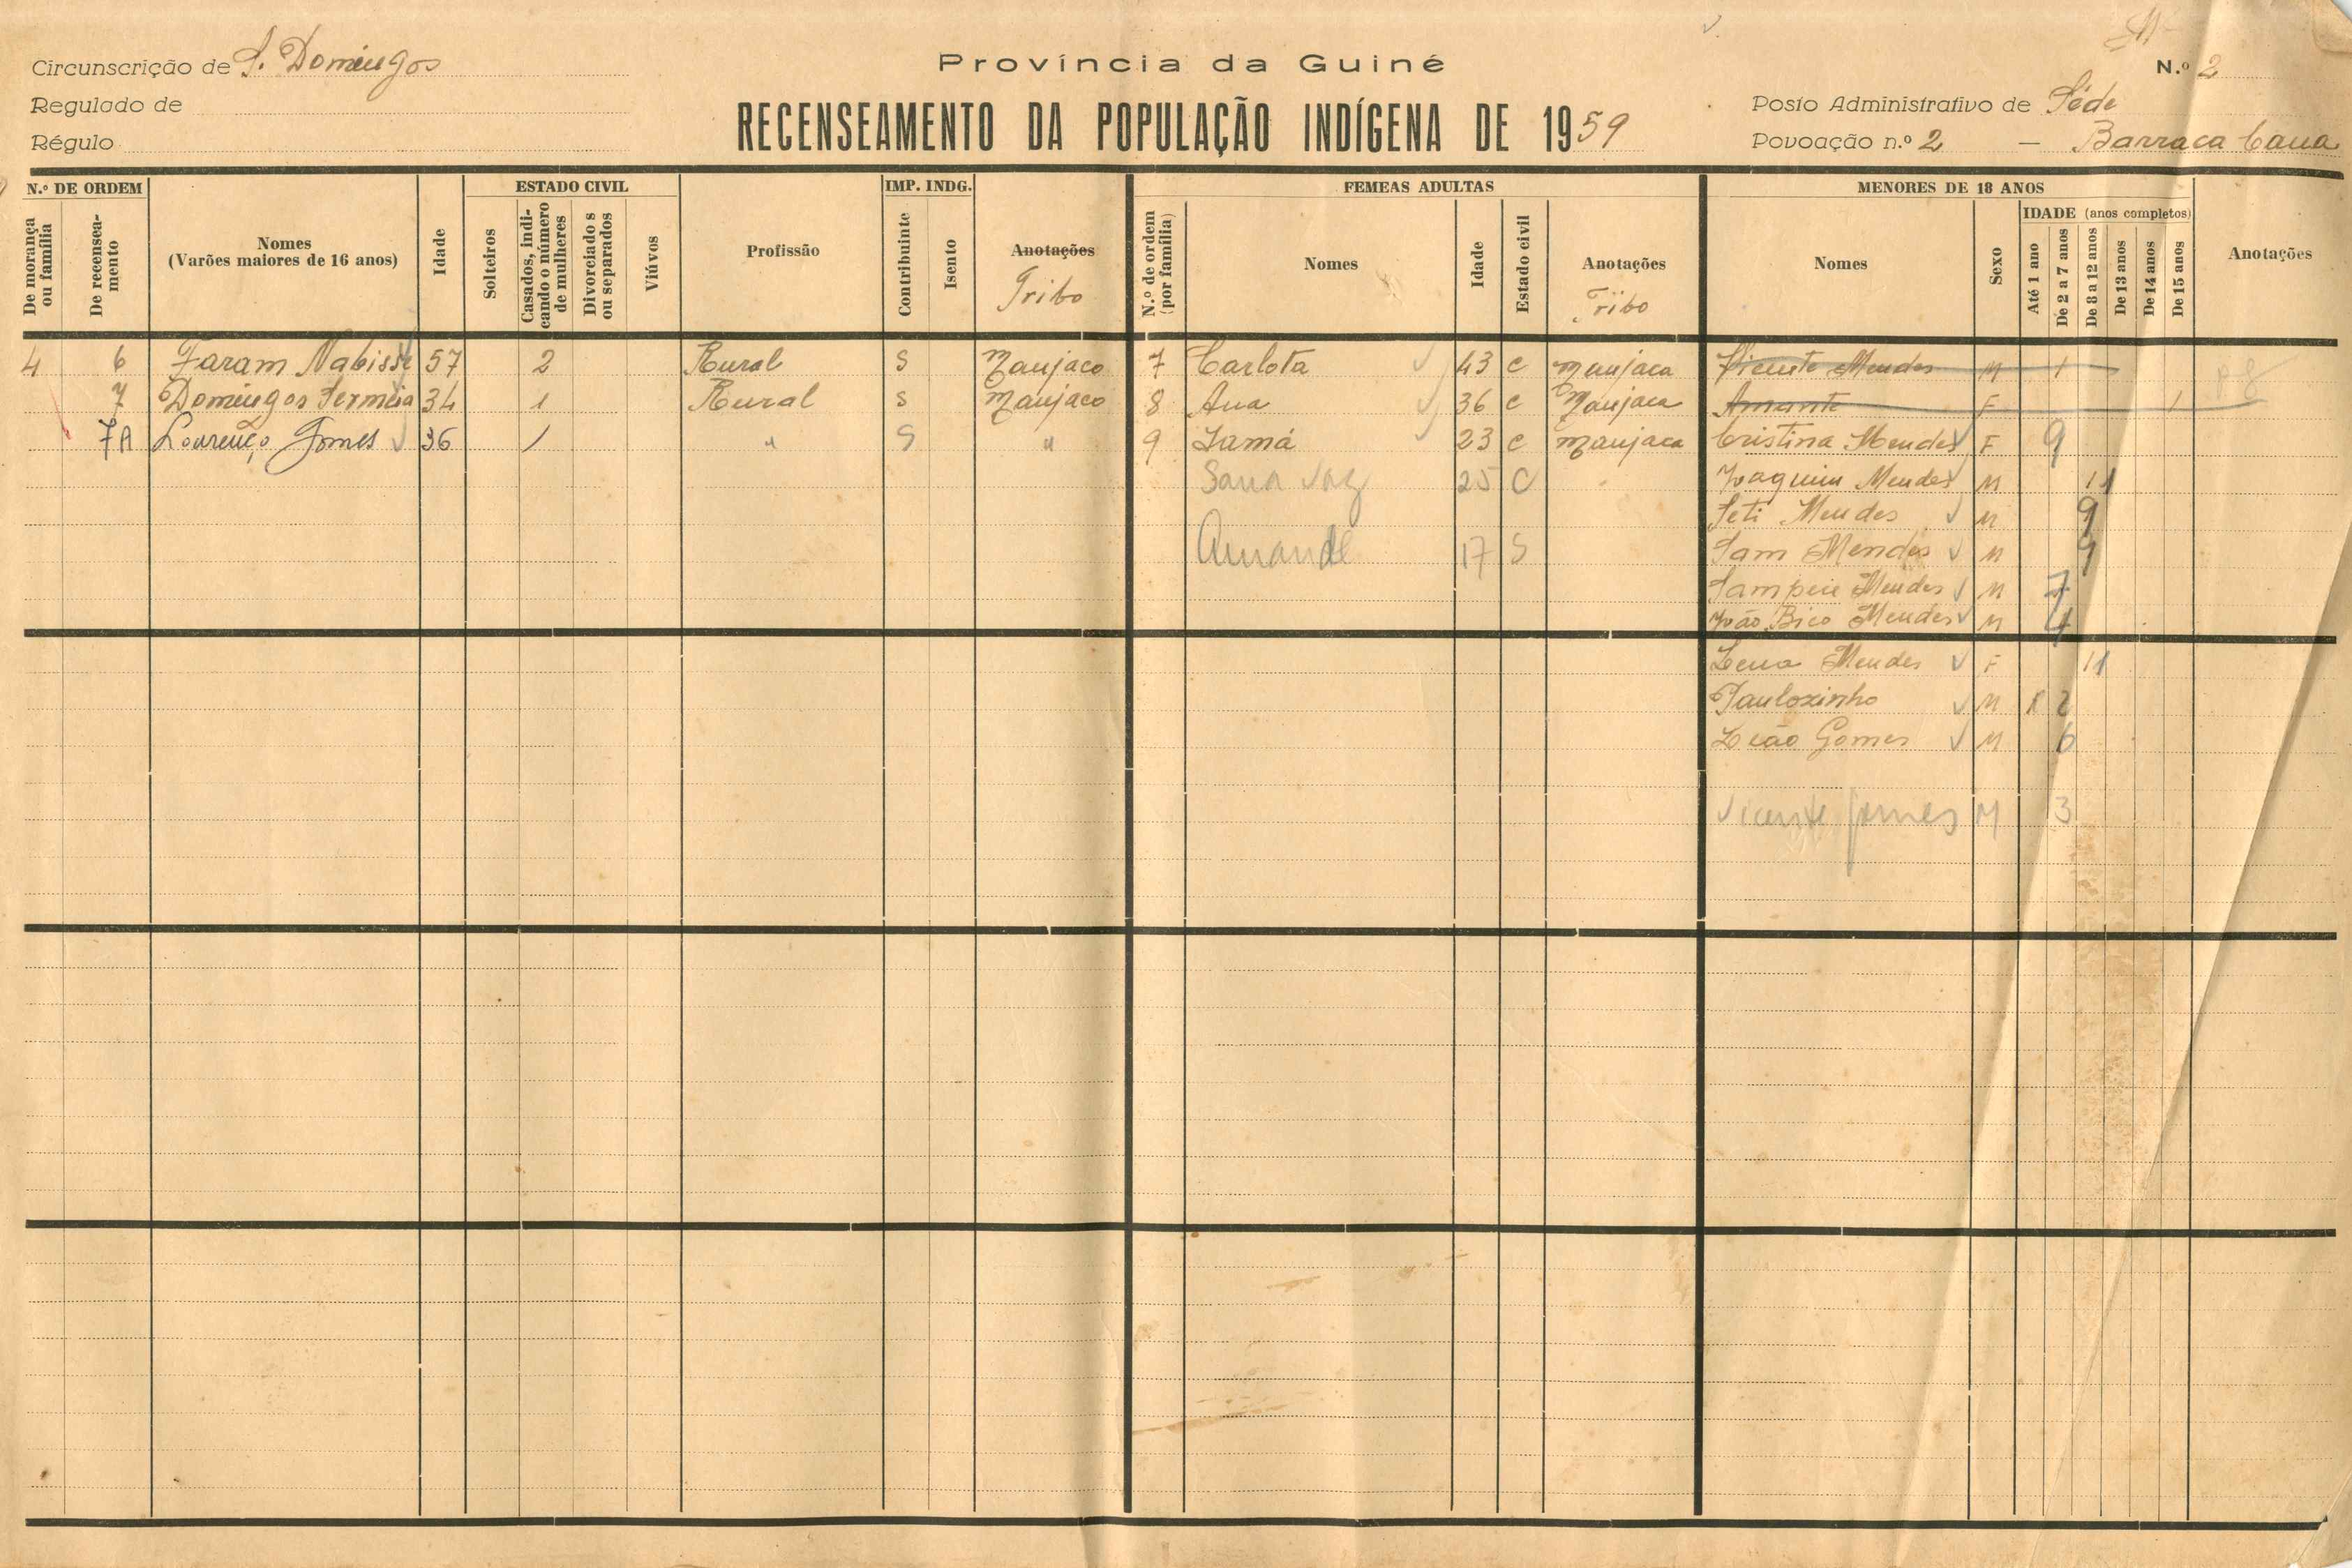 Circunscrição de S. Domingos
Regulado de
Régulo
Província da Guiné
RECENSEAMENTO DA POPULAÇÃO INDÍGENA DE 1959
N.º 2
Posto Administrativo de Séde
Povoação n.º 2 — Barraca
N.º DE ORDEM
De morança ou família
De recenseamento
Nomes
(Varões maiores de 16 anos)
Idade
ESTADO CIVIL
Solteiros
Casados, indicando o número de mulheres
Divorciados ou separados
Viúvos
Profissão
IMP. INDG.
Contribuinte
Isento
Anotações
Tribo
FEMEAS ADULTAS
N.º de ordem (por família)
Nomes
Idade
Estado civil
Anotações
Tribo
MENORES DE 18 ANOS
Nomes
Sexo
IDADE (anos completos)
Até 1 ano
De 2 a 7 anos
De 8 a 12 anos
De 13 anos
De 14 anos
De 15 anos
Anotações
4 6 Faram Nabisse 57 2 Rural S Manjaco 7 Carlota 43 C Manjaca Vicente Mendes M 1
7 Domingos 34 1 Rural S Manjaco 8 Ana 36 C Manjaca Amante F 1
7A Lourenço Gomes 36 1 " S " 9 Samá 23 C Manjaca Cristina Mendes F 9
Sana Vaz 25 C Joaquim Mendes M 11
Seti Mendes M 9
17 S Sam Mendes M 9
Mendes M 7
João Bico Mendes M 4
Lena Mendes F 11
Pauloxinho M 2
Leão Gomes M 6
Vicente Gomes M 3